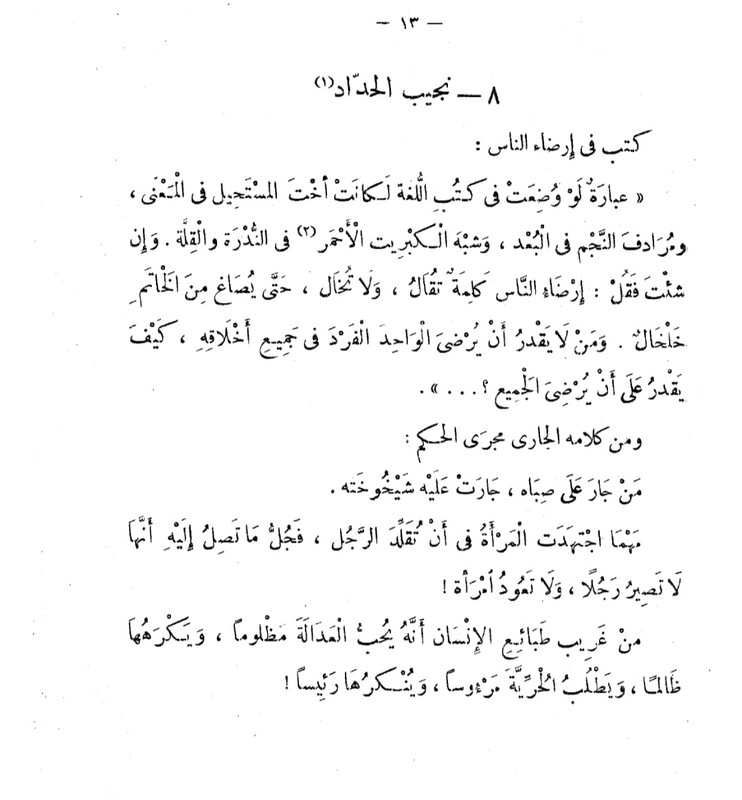 — ١٣ —
٨ — نجيب الحدّاد (١)
كتب فى إرضاء الناس :
« عبارةٌ لَوْ وُضِعَتْ فى كتُبِ اللُّغة لَكانَتْ أخْتَ المسْتَحيل فى الْمَعْنَى ،
ومُرَادفَ النَّجْم فى الْبُعْد ، وَشبْهَ الْكبْريت الْأَحْمَر (٢) فى النُّدْرَة والْقِلَّة . وَإن
شئْتَ فَقُلْ : إرْضَاءِ النَّاس كَلمَةٌ تُقَالُ ، وَلَا تُخَال ، حَتَّى يُصَاغ مِنَ الْخَاتَمِ
خَلْخَالٌ . وَمَنْ لَا يَقْدرُ أَنْ يُرْضىَ الْوَاحِدَ الْفَرْدَ فى جَمِيعِ أَخْلَاقِهِ ، كَيْفَ
يَقْدرُ عَلَى أَنْ يُرْضِىَ الْجَمِيعِ ؟ . . . » .
ومن كلامه الجارى مجرَى الحكم :
مَنْ جَارَ عَلَى صِبَاه ، جَارَتْ عَلَيْه شَيْخُوخَته .
مَهْمَا اجْتهَدَت الْمَرْأَةُ فى أَنْ تُقَلِّدَ الرَّجُل ، فَجُلُّ مَا تَصِلُ إلَيْهِ أَنَّهَا
لَا تَصِيرُ رَجُلًا ، وَلَا تَعُودُ امْرَأة !
منْ غَرِيب طَبَائِع الإنْسَان أَنَّهُ يُحبُّ الْعَدَالَةَ مَظْلومًا ، وَيَكْرَهُهَا
ظَالمًا ، وَيَطْلُبُ الْحُرِّيَّةَ مَرْءوسًا ، وَيُنْكرُهَا رَئِيسًا !